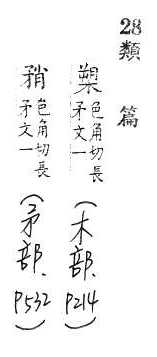 28 類篇
槊 色角切長矛文一 (木部、P214)
矟 色角切長矛文一 (矛部、P532)